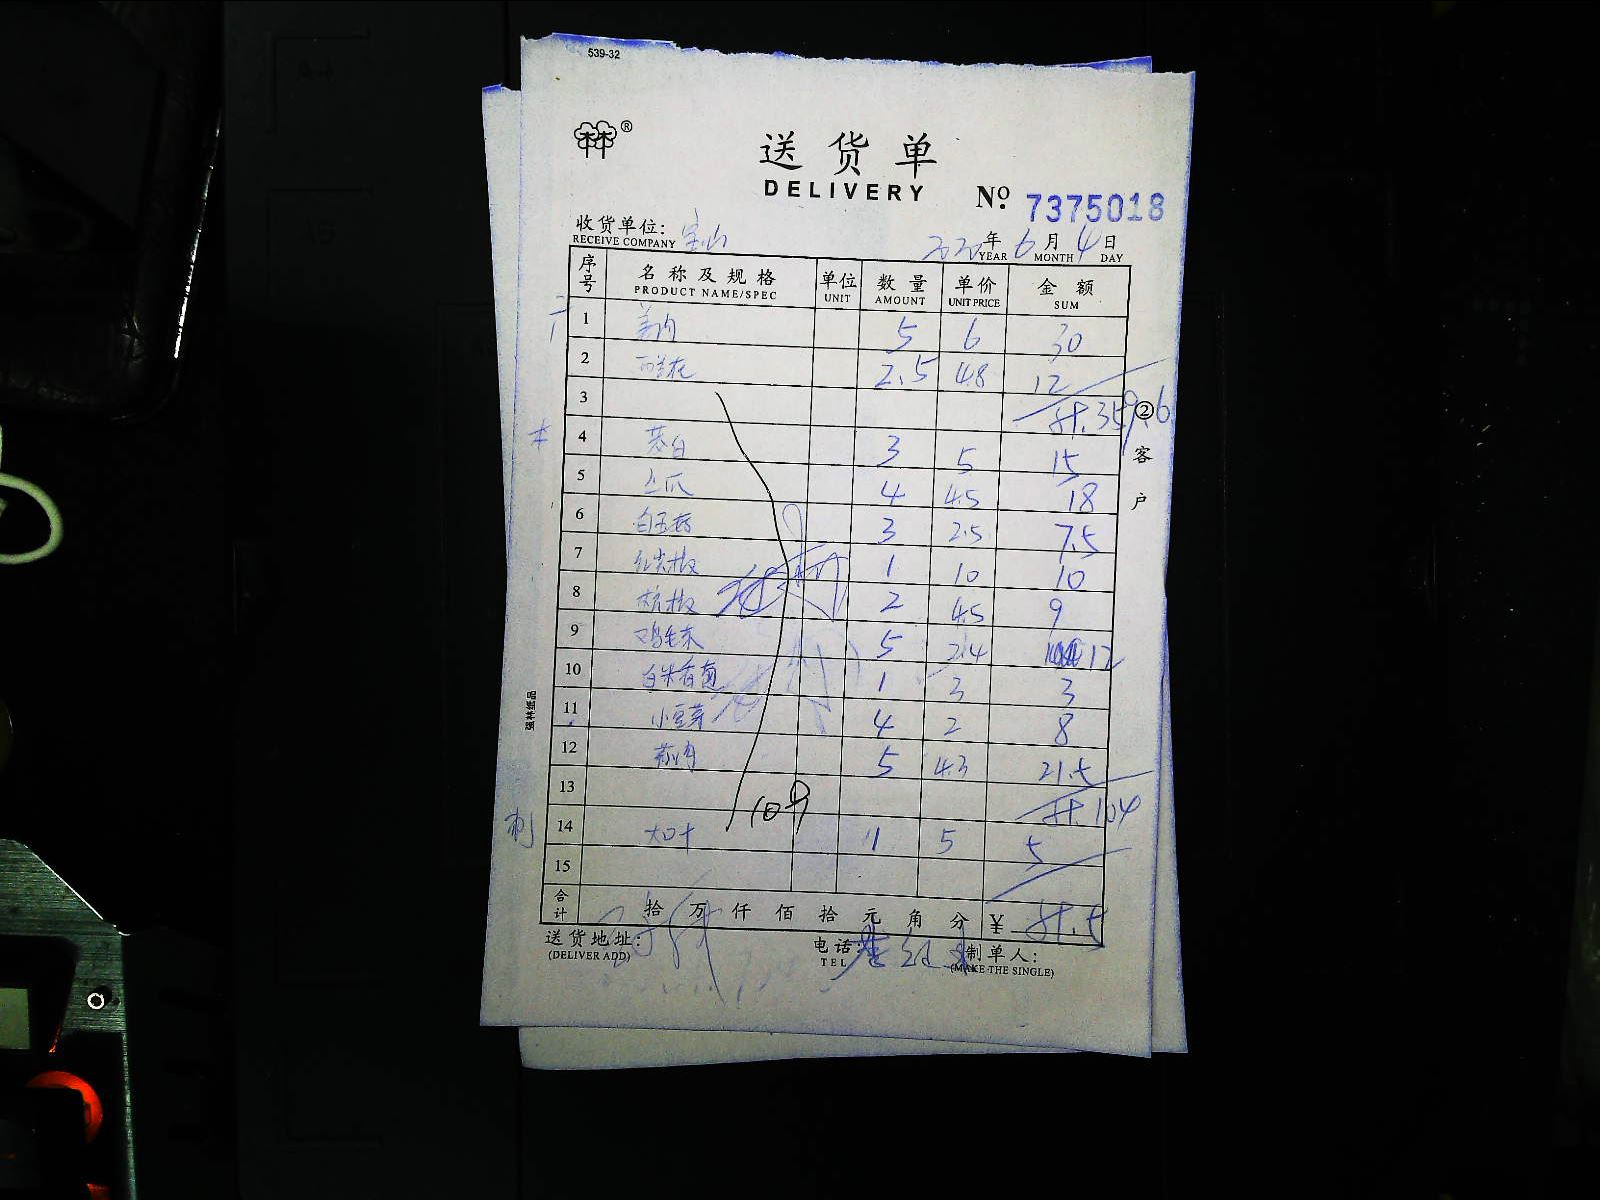 539-32
®
送货单
DELIVERY
№ 7375018
收货单位: 宝山
RECEIVE COMPANY
2020年 6月 4日
YEAR MONTH DAY
序号 名称及规格 单位 数量 单价 金额
PRODUCT NAME/SPEC UNIT AMOUNT UNIT PRICE SUM
1 5 6 30
2 2.5 4.8 12
3 计.359.6
4 茭白 3 5 15
5 4 4.5 18
6 白玉菇 3 2.5 7.5
7 红尖椒 1 10 10
8 杭椒 2 4.5 9
9 鸡毛菜 5 2.4 12
10 白米香菌 1 3 3
11 小豆芽 4 2 8
12 5 4.3 21.5
13 计.104
14 大叶 1 5 5
15
10号
合计 拾 万 仟 佰 拾 元 角 分 ¥ 计.5
送货地址:
(DELIVER ADD)
电话:
TEL
制单人:
(MAKE THE SINGLE)
②客户
强林纸品